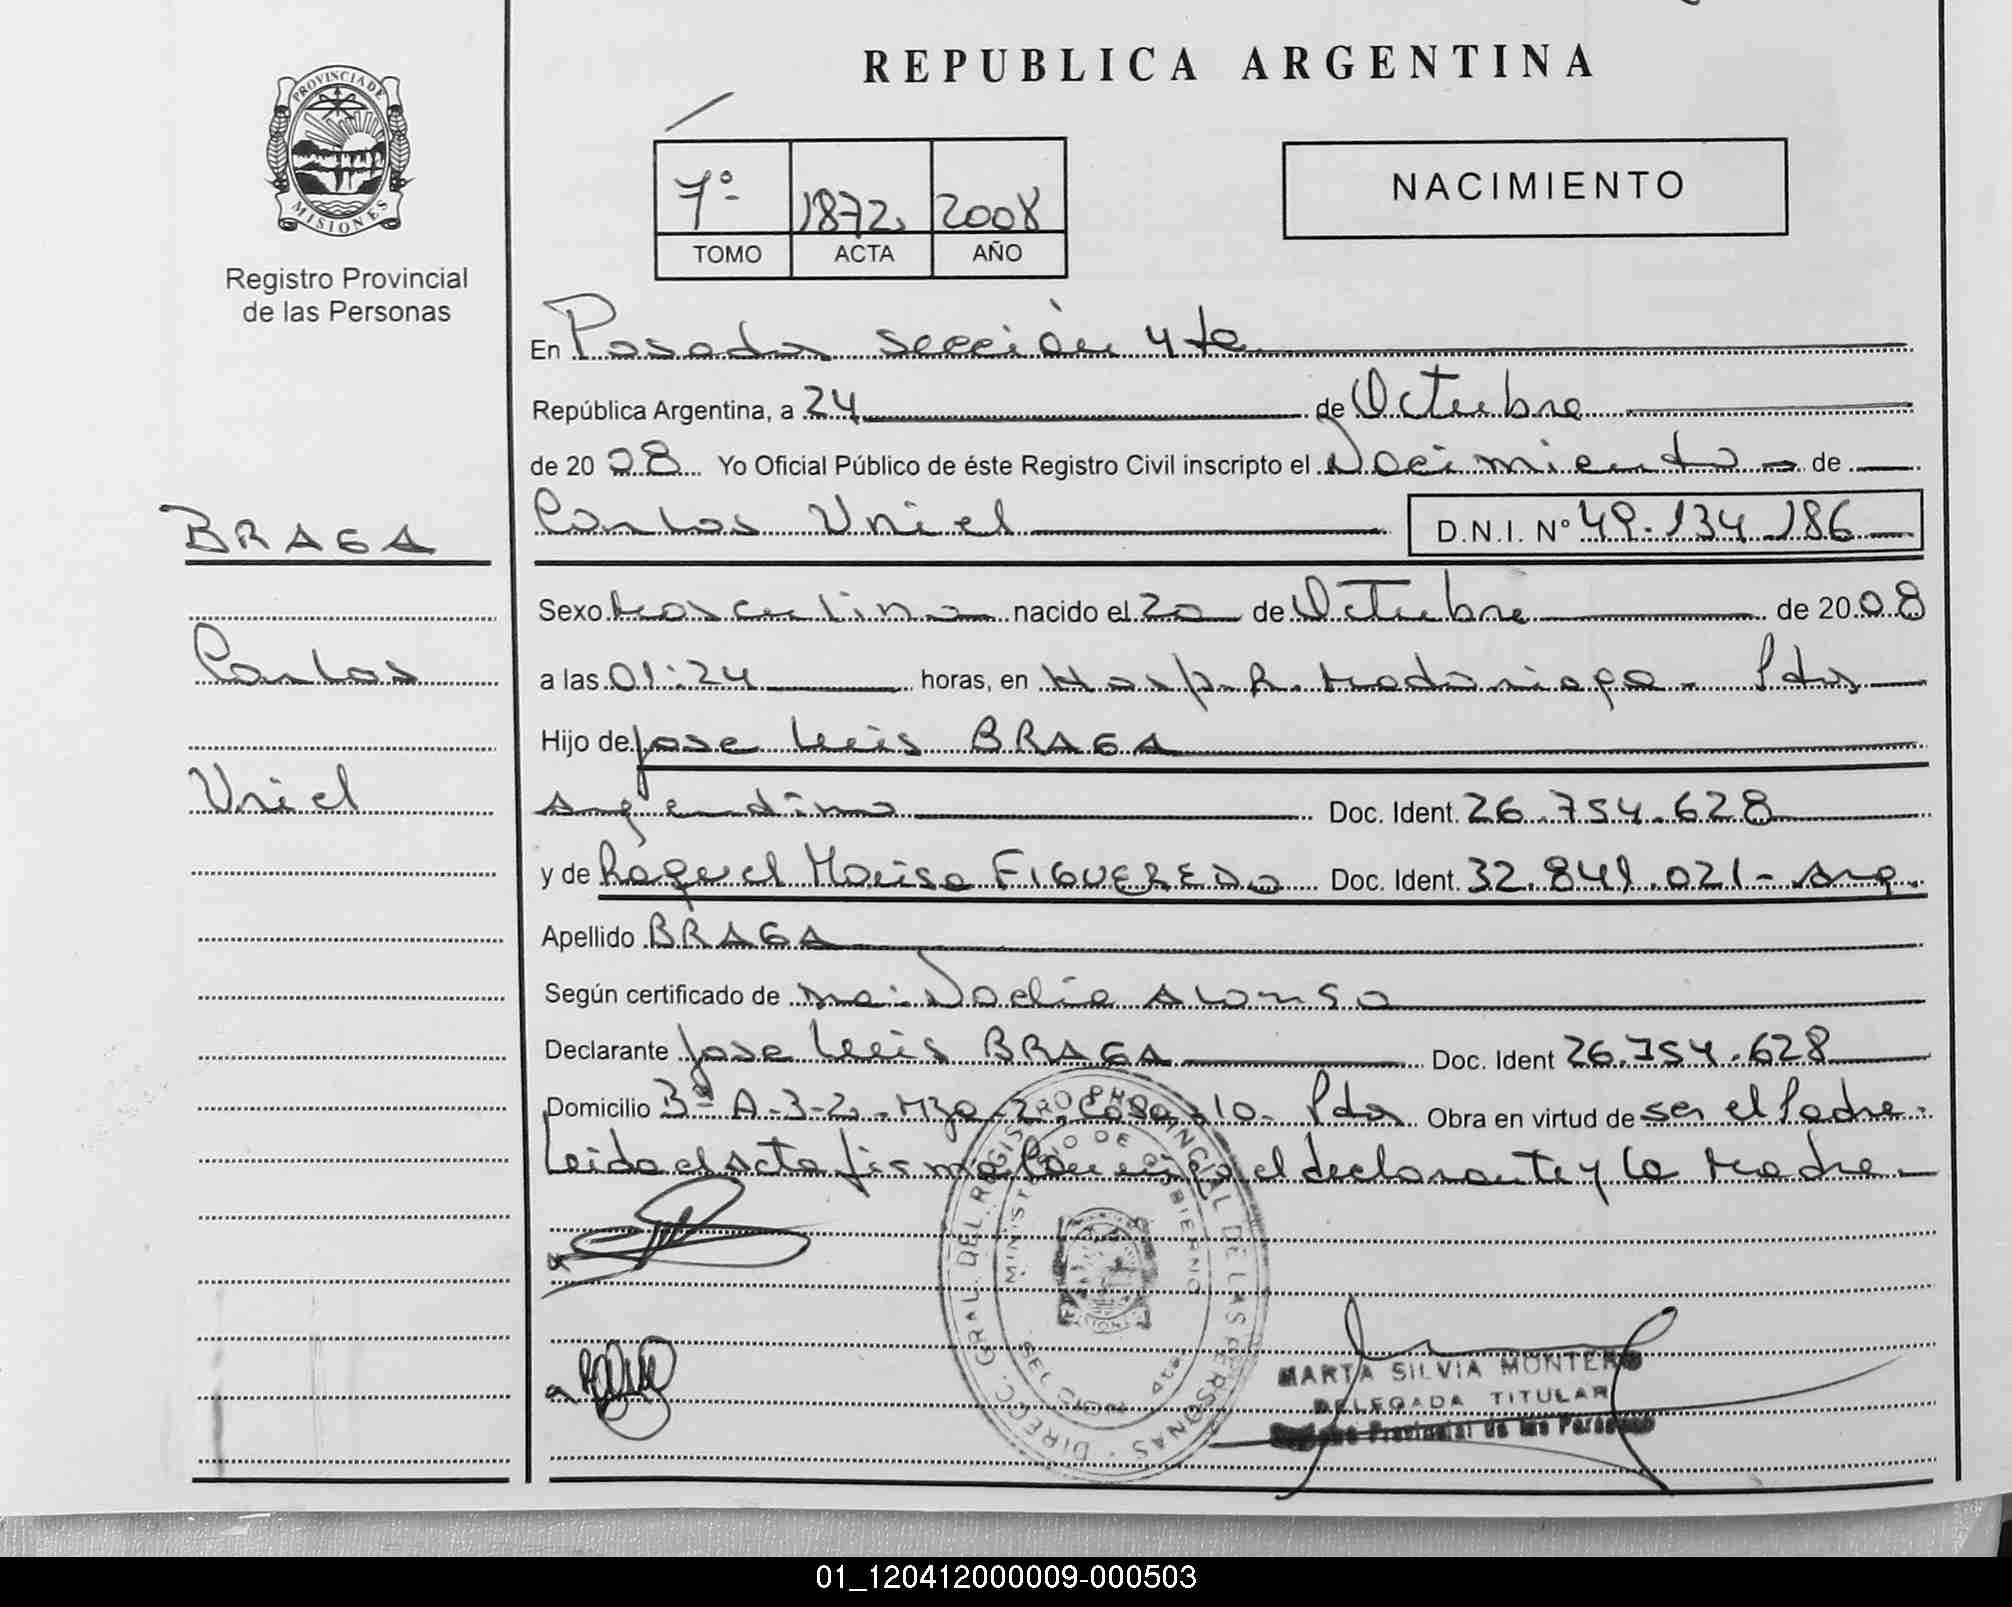 REPUBLICA ARGENTINA
PROVINCIA DE
MISIONES
Registro Provincial
de las Personas
7º 1872 2008
TOMO ACTA AÑO
NACIMIENTO
En Posadas sección 4ta
República Argentina, a 24 de Octubre
de 20 08 Yo Oficial Público de éste Registro Civil inscripto el Nacimiento de
BRAGA
Carlos Uriel D.N.I. Nº 49.134.186
Sexo Masculino nacido el 20 de Octubre de 20 08
Carlos
a las 01:24 horas, en Hosp. R. Madariaga - Pdas
Hijo de Jose Luis BRAGA
Uriel
Argentino Doc. Ident. 26.754.628
y de Raquel Marisa FIGUEREDO Doc. Ident. 32.841.021 - Arg.
Apellido BRAGA
Según certificado de Noelia Alonso
Declarante Jose Luis BRAGA Doc. Ident 26.754.628
Domicilio Bº A-3-2 - Mza 2, Casa 10 - Pdas Obra en virtud de ser el Padre.
Leida el Acta firma el declarante y la Madre
DIRECC. GRAL. DEL REGISTRO PROVINCIAL DE LAS PERSONAS
MINISTERIO DE GOBIERNO
SECCION 4ta
MARTA SILVIA MONTERO
DELEGADA TITULAR
Registro Provincial de las Personas
01_120412000009-000503